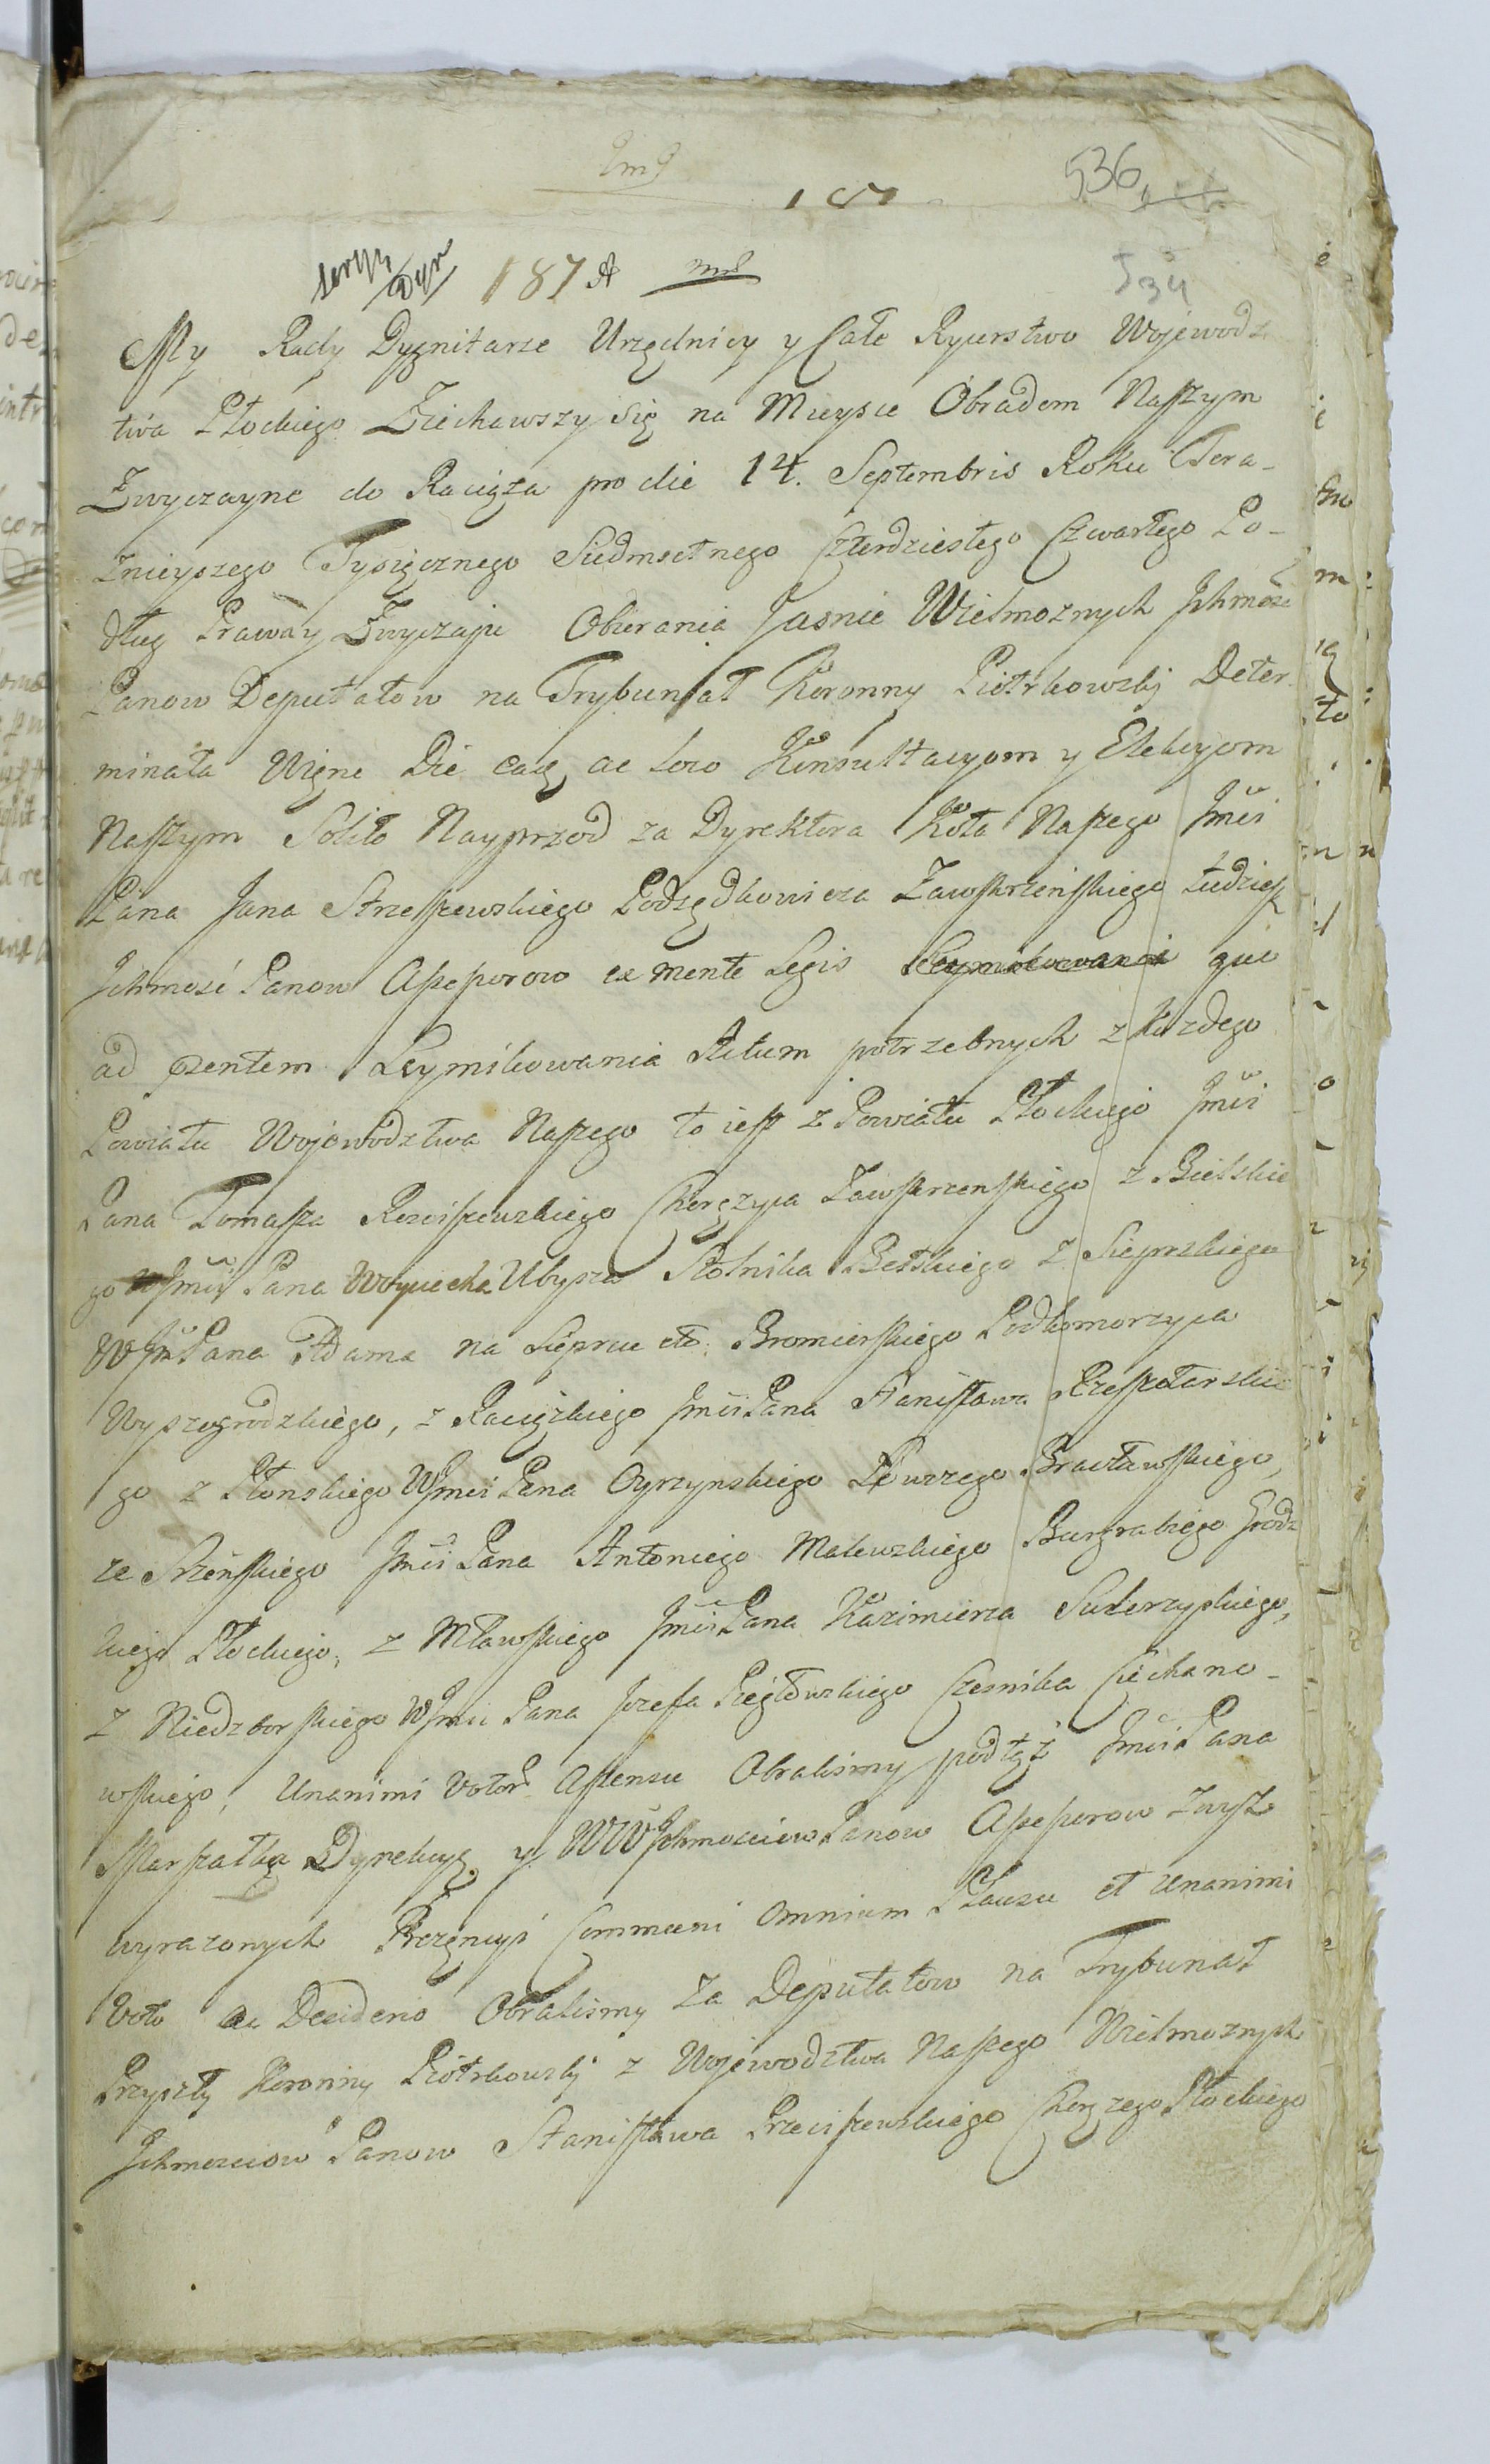 187
536
187 A
534
My Rady Dygnitarze Urzędnicy y Całe Rycerstwo Wojewodz
twa Płockiego Ziechawszy się na Mieysce Obradom Naszym
Zwyczayne do Raciąża pro die 14. Septembris Roku Tera-
znieyszego Tysiącznego Siedmsetnego Czterdziestego Czwartego Po-
dług Prawa y Zwyczaju Obierania Jasnie Wielmoznych Ichmość
Panow Deputatow na Trybunał Koronny Piotrkowski Deter
minata Więne Die eaq ac loco Konsultacyom y Elekcyom
Naszym Solito Nayprzod za Dyrektora Koła Naszego Jmci
Pana Jana Strzeszewskiego Podsędkowicza Zawskrzeńskiego tudziesz
Ichmość Panow Assessorow ex mente Legis qui
ad pzentem Leymikowania Actum potrzebnych z Kazdego
Powiatu Wojewodztwa Naszego to iest z Powiatu Płockiego Jmci
Pana Tomasza Rosciszewskiego Chorązyca Zawskrzenskiego z Bielskie
go WJmci Pana Woyciecha Ubysza Stolnika Bełskiego z Sieprskiego
WJm Pana Adama na Sieprcu etc. Bromierskiego Podkomorzyca
Wyszogrodzkiego, z Raciązkiego Jmci Pana Stanisława Rzeszotarskie
go z Płonskiego WJmci Pana Oyrzynskiego Łowczego Bracławskiego,
ze Srzeńskiego Jmci Pana Antoniego Malewskiego Burgrabiego Grodz
kiego Płockiego, z Mławskiego Jmci Pana Kazimierza Suderzyskiego,
z Niedzborskiego WJmci Pana Jozefa Pięgłowskiego Czesnika Ciechano-
wskiego, Unanimi Votor Assensu Obralismy pod tąż Jmci Pana
Marszałka Dyrekcyą y WW Ichmosciow Panow Assessorow zwysz
wyrazonych Communi Omnium Plausu et Unanimi
Voto ac Desiderio Obralismy za Deputatow na Trybunał
Przyszły Koronny Piotrkowski z Wojewodztwa Naszego Wielmoznych
Ichmosciow Panow Stanisława Przeciszewskiego Chorązego Płockiego